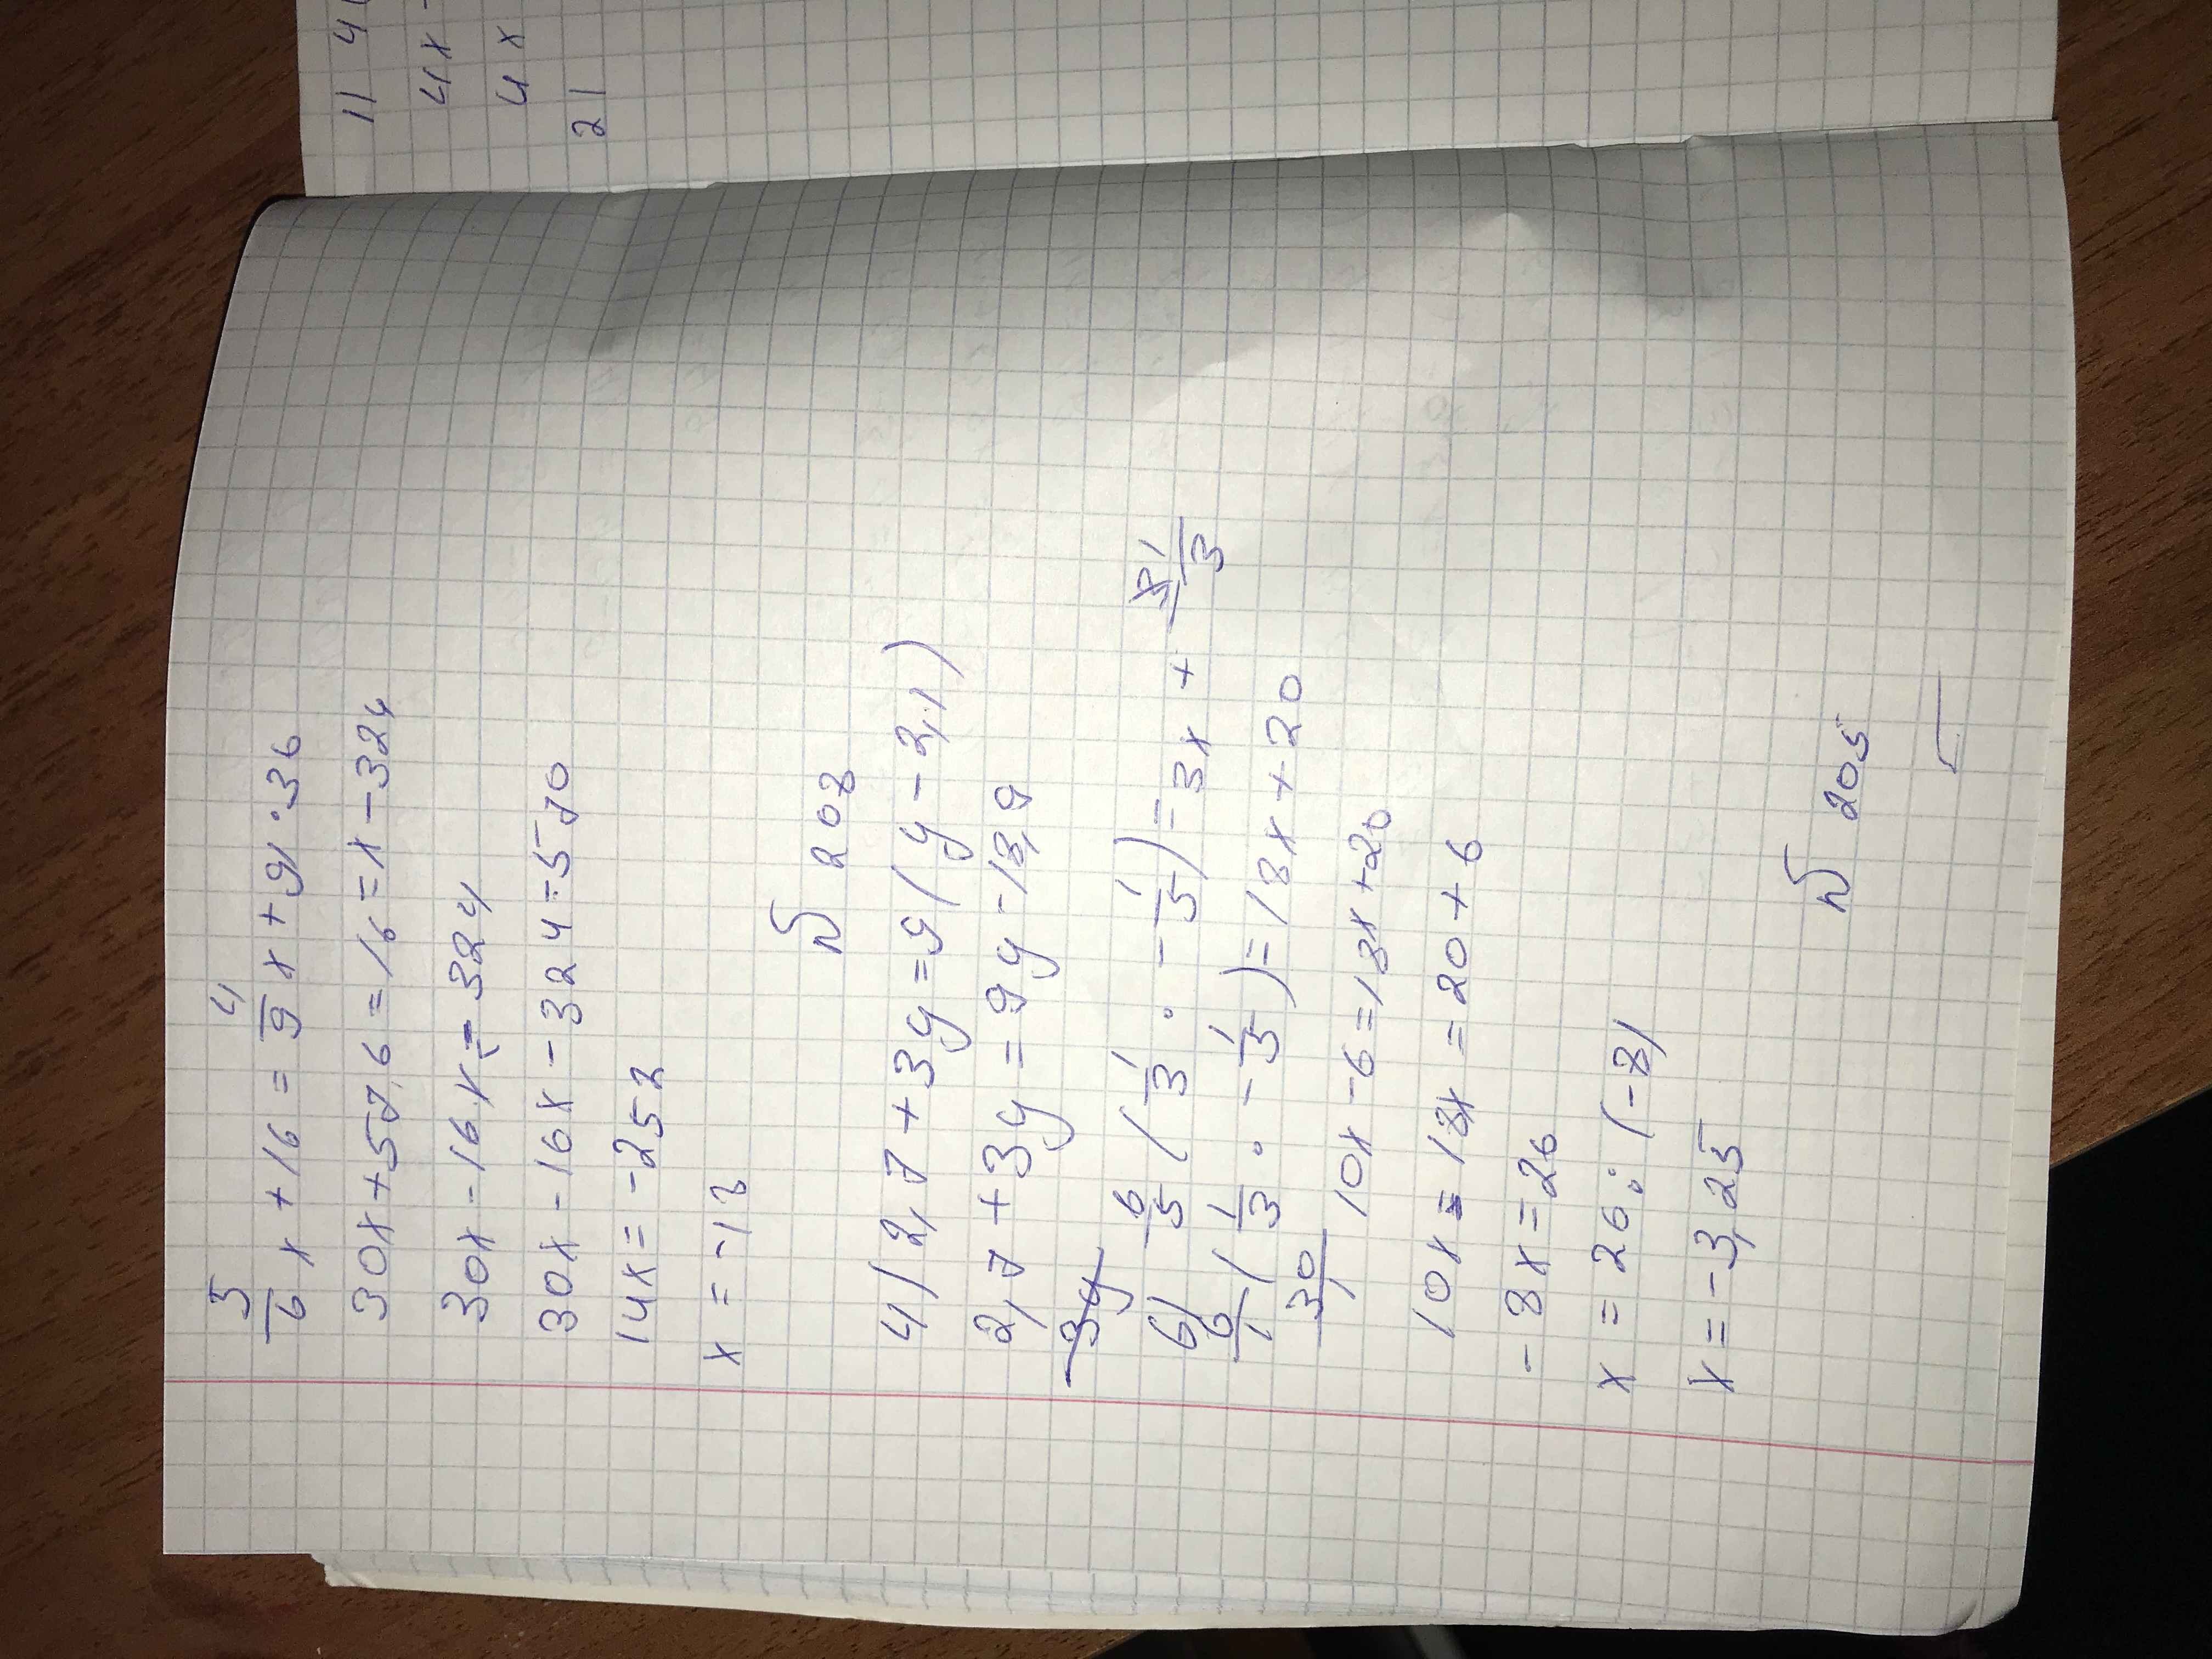 5/6 x + 16 = 4/9 x + 9 | · 36
30x + 57,6 = 16 = x - 324
30x - 16x = - 324
30x - 16x - 324 - 570
14x = - 252
x = - 18
№ 208
4) 2,7 + 3y = 9 (y - 2,1)
2,7 + 3y = 9y - 18,9
3y
6) 6/5 ( 1/3 · - 1/5 ) = 3x + 1/3
6/1 ( 1/3 · - 1/5 ) = 18x + 20
30
10x - 6 = 18x + 20
10x = 18x = 20 + 6
- 8x = 26
x = 26 : (-8)
x = - 3,25
№ 205
11 4
4x -
4x
21